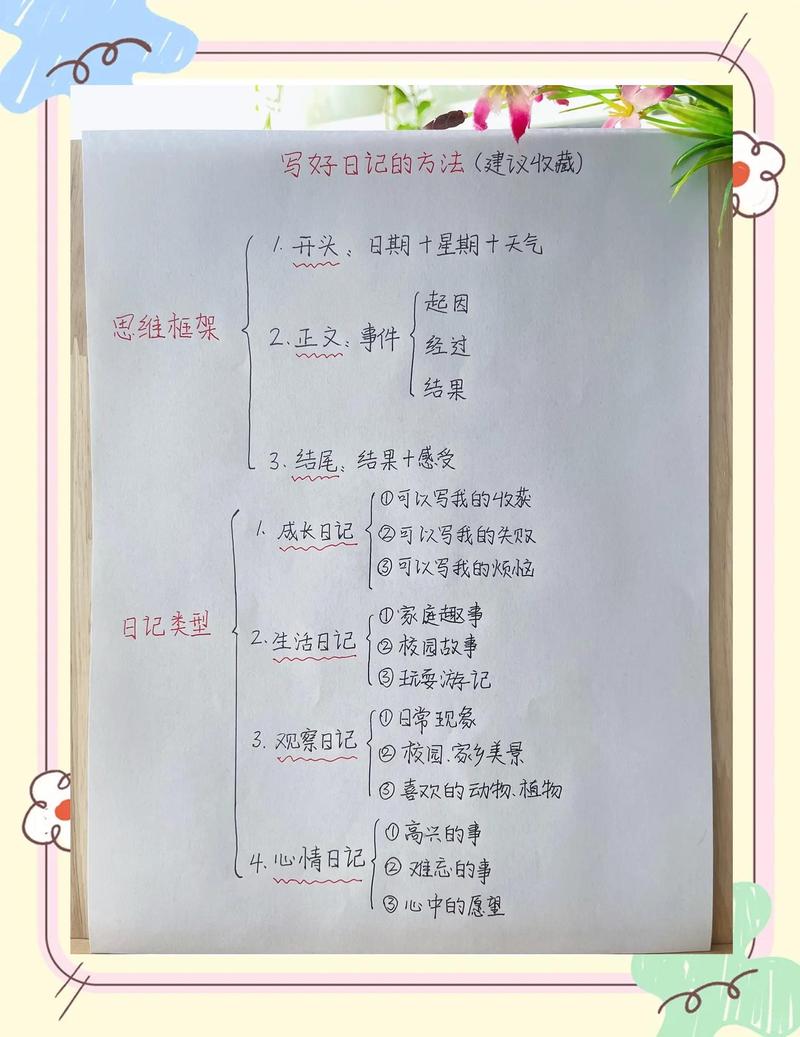 写好日记的方法(建议收藏)
思维框架
1. 开头：日期+星期+天气
2. 正文：事件
起因
经过
结果
3. 结尾：结果+感受
日记类型
1. 成长日记
①可以写我的收获
②可以写我的失败
③可以写我的烦恼
2. 生活日记
①家庭趣事
②校园故事
③玩耍游记
3. 观察日记
①日常现象
②校园、家乡美景
③喜欢的动物、植物
4. 心情日记
①高兴的事
②难忘的事
③心中的愿望